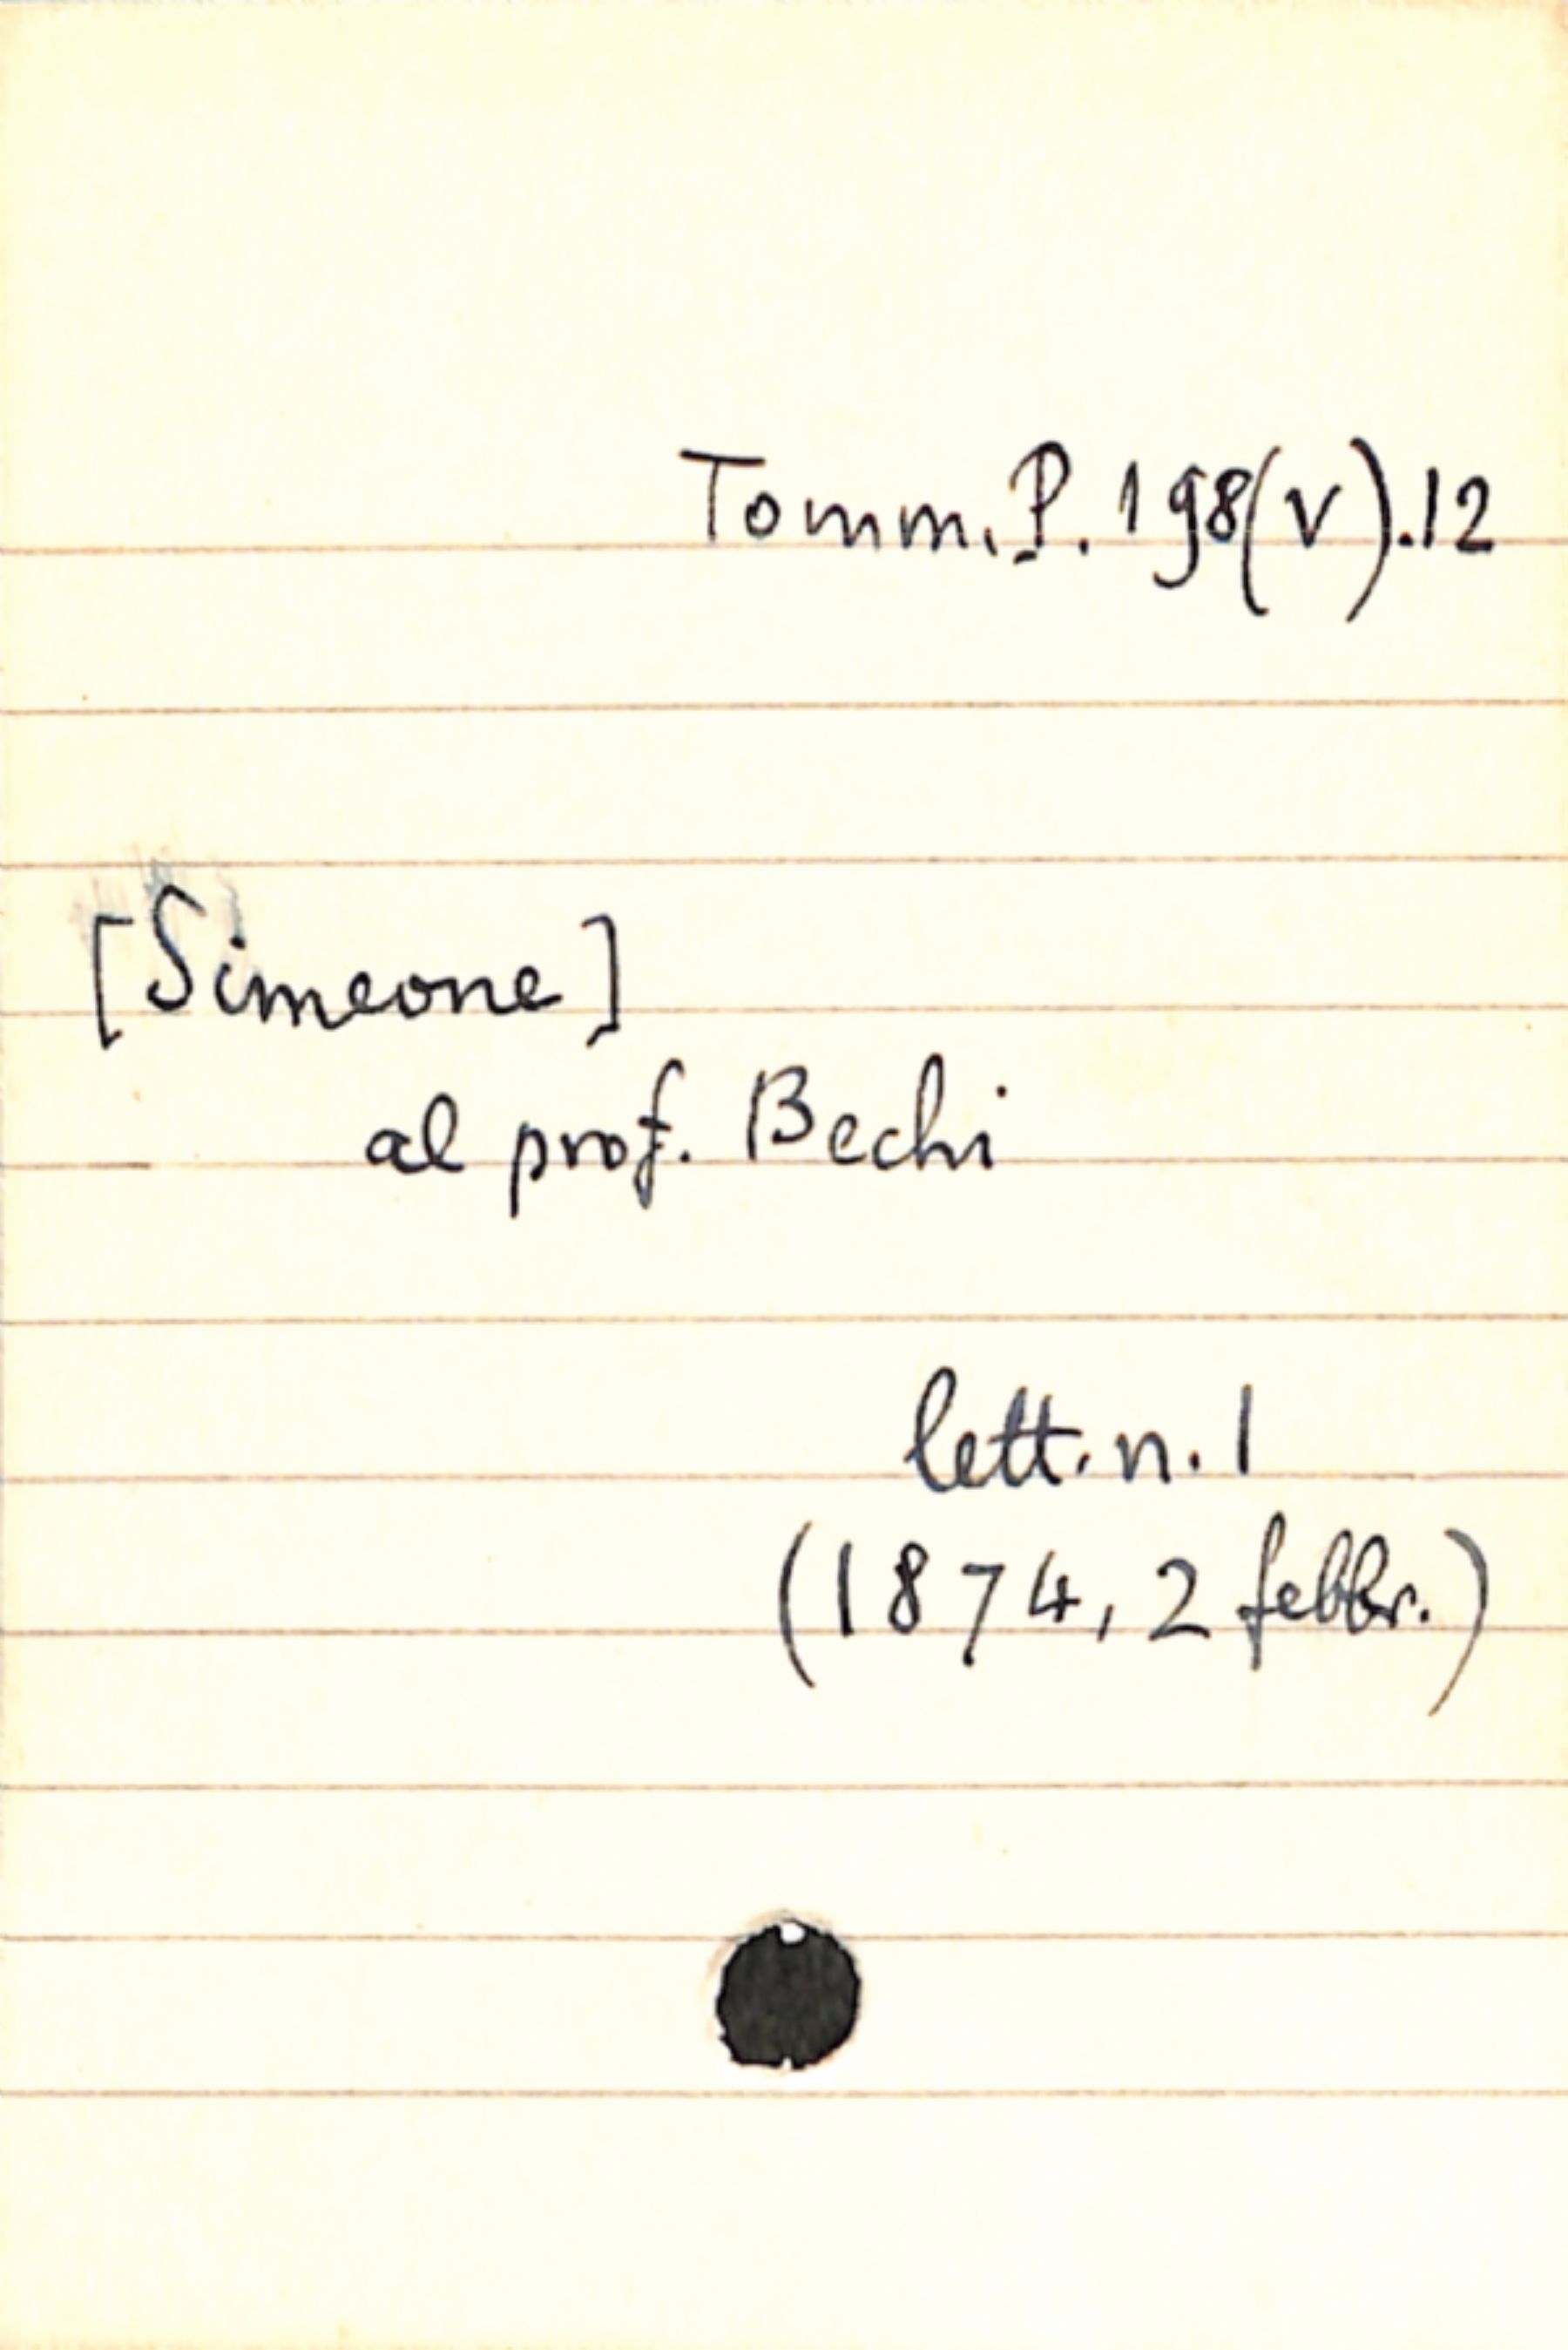 Tomm. P. 198(V).12
[Simeone]
al prof. Bechi
lett. n. 1
(1874, 2 febbr.)